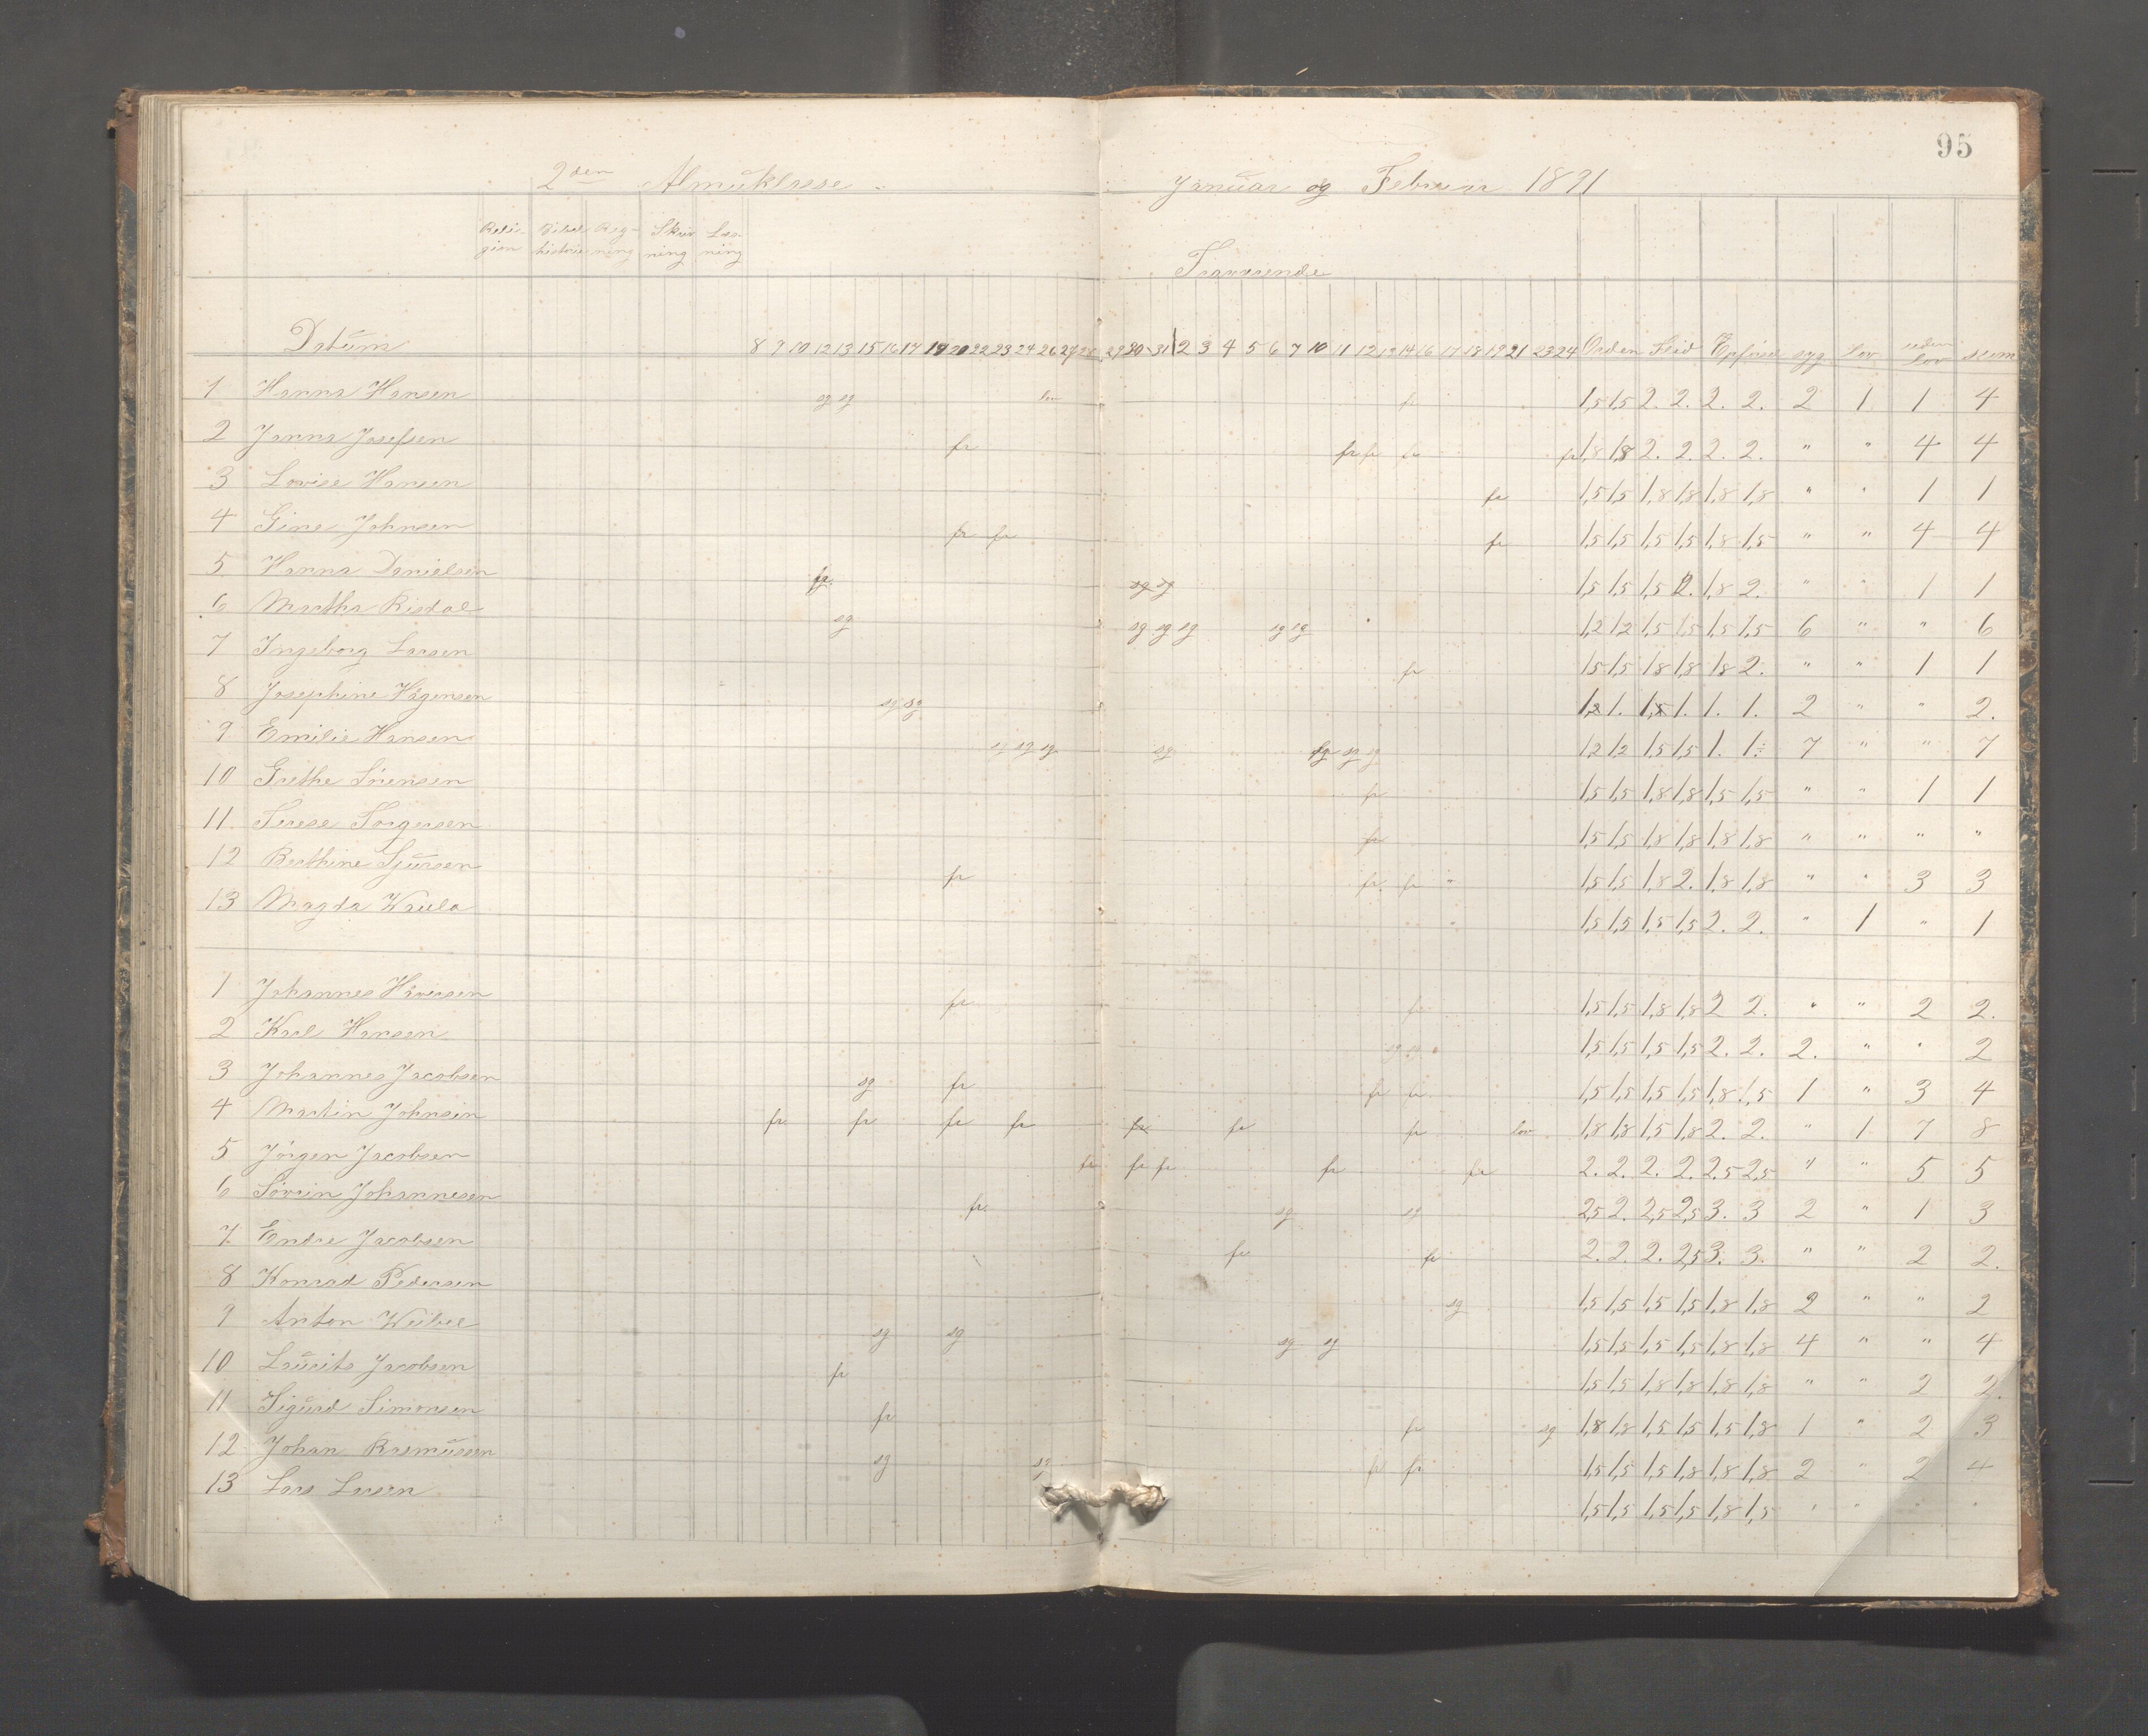 95
2den Almuklasse. Januar og Februar 1891
Reli- Bibel Reg- Skriv Læs-
gion historie ning ning ning
Fraværende
Datum 8 9 10 12 13 15 16 17 19 20 22 23 24 26 27 28 29 30 31 2 3 4 5 6 7 10 11 12 13 14 16 17 18 19 21 23 24 Orden Flid Opførsel syg lov uden lov sum
1 Hanna Hansen sg sg lov fr 1,5 1,5 2. 2. 2. 2. 2 1 1 4
2 Janna Josefsen fr fr fr fr fr 1,8 1,8 2. 2. 2. 2. " " 4 4
3 Lovise Hansen fr 1,5 1,5 1,8 1,8 1,8 1,8 " " 1 1
4 Gine Johnsen fr fr fr 1,5 1,5 1,5 1,5 1,8 1,5 " " 4 4
5 Hanna Danielsen fr. sg sg 1,5 1,5 1,5 2. 1,8 2. " " 1 1
6 Martha Risdal sg sg sg sg sg sg 1,2 1,2 1,5 1,5 1,5 1,5 6 " " 6
7 Ingeborg Larsen fr 1,5 1,5 1,8 1,8 1,8 2. " " 1 1
8 Josephine Hågensen sg sg 1,2 1. 1,5 1. 1. 1. 2 " " 2.
9 Emilie Hansen sg sg sg sg sg sg sg 1,2 1,2 1,5 1,5 1. 1. 7 " " 7
10 Grethe Sørensen fr 1,5 1,5 1,8 1,8 1,5 1,5 " " 1 1
11 Serese Torgersen fr 1,5 1,5 1,8 1,8 1,8 1,8 " " " "
12 Berthine Sjursen fr fr. fr 1,5 1,5 1,8 2. 1,8 1,8 " " 3 3
13 Magda 1,5 1,5 1,5 1,5 2. 2. " 1 " 1
1 Johannes Håversen fr fr 1,5 1,5 1,8 1,8 2 2. " " 2 2.
2 Karl Hansen sg sg 1,5 1,5 1,5 1,5 2. 2. 2. " " 2
3 Johannes Jacobsen sg fr fr fr 1,5 1,5 1,5 1,5 1,8 1,5 1 " 3 4
4 Martin Johnsen fr. fr fr fr fr fr fr lov 1,8 1,8 1,5 1,8 2. 2. " 1 7 8
5 Jörgen Jacobsen fr fr fr fr fr 2. 2. 2. 2. 2,5 2,5 " " 5 5
6 Søvrin Johannesen fr. sg sg 2,5 2. 2,5 2,5 3. 3 2 " 1 3
7 Endre Jacobsen fr fr 2. 2. 2. 2,5 3. 3. " " 2 2.
8 Konrad Pedersen sg 1,5 1,5 1,5 1,5 1,8 1,8 2 " " 2
9 Anton sg sg sg sg 1,5 1,5 1,5 1,5 1,8 1,8 4 " " 4
10 Laurits Jacobsen fr 1,5 1,5 1,8 1,8 1,8 1,8 " " 2 2.
11 Sigurd Simonsen fr fr sg 1,8 1,8 1,5 1,5 1,5 1,8 1 " 2 3
12 Johan Rasmussen sg sg fr fr 1,5 1,5 1,5 1,8 1,8 1,8 2 " 2 4
13 Lars Larsen 1,5 1,5 1,5 1,5 1,8 1,5 " " " "